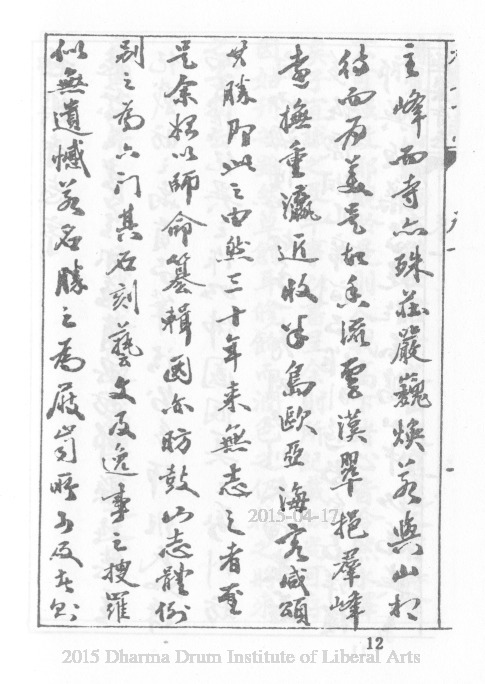 主峰而寺亦殊莊嚴巍煥若與山相
待而有美是故香流霄漢翠挹羣峰
遠撫重瀛近收半島歐亞海客咸頌
其勝所此之由然三十年來無志之者至
是余始以師命纂輯因亦昉鼓山志體例
別之為六門其石刻藝文及逸事之搜羅
似無遺憾若名勝之為屐齒所不及者則
2015-04-17
12
2015 Dharma Drum Institute of Liberal Arts